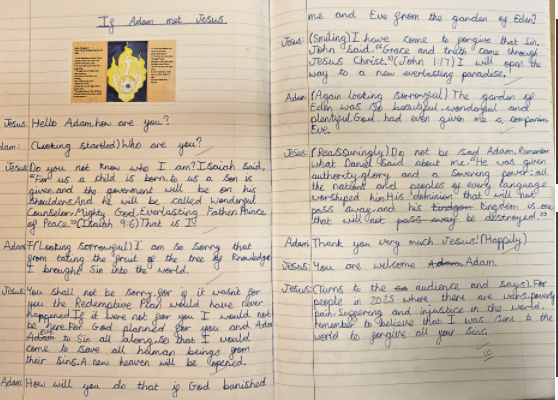 If Adam met Jesus
Jesus: Hello Adam. how are you?
Adam: (Looking startled) Who are you?
Jesus: Do you not know who I am? Isaiah said,
"For us a child is born, to us a son is
given, and the goverment will be on his
shoulders. And he will be called Wonderful
Counselor, Mighty God, Everlasting Father, Prince
of Peace." (Isaiah 9:6) That is I!
Adam: (Looking sorrowful) I am so sorry that
from eating the fruit of the tree of Knowledge
I brought Sin into the world.
Jesus: You shall not be sorry, for if it wasnt for
you the Redemptive Plan would have never
happened. If it were not for you I would not
be here. For God planned for you and
Eve
Adam to Sin all along, so that I would
come to save all human beings from
their Sins. A new heaven will be opened.
Adam: How will you do that if God banished
me and Eve from the garden of Eden?
Jesus: (Smiling) I have come to forgive that Sin.
John said "Grace and truth came through
Jesus Christ." (John 1:17) I will open the
way to a new everlasting paradise.
Adam: (Again looking sorrowful) The garden of
Eden was so beautiful, wonderful and
plentiful. God had even given me a companion
Eve.
Jesus: (Reassuringly) Do not be sad Adam. Remember
what Daniel said about me. "He was given
authority, glory and a sovering power: all
the nations and peoples of every language
worshiped him. His dominion that will not
pass away, and his kingdom is one
that will not be destroyed."
Adam: Thank you very much Jesus! (Happily)
Jesus: You are welcome Adam.
Jesus: (Turns to the audience and says). For
people in 2025 where there are wars, poverty
pain, suffering and injustice in the world,
remember to believe that I was sent to the
world to forgive all your sins.